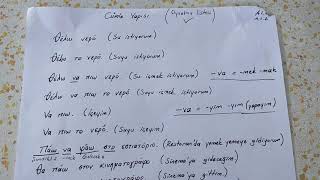 Cümle Yapısı (Olumlu cümle) A1.1 A1.2
Θέλω νερό. (Su istiyorum)
Θέλω το νερό. (Suyu istiyorum)
Θέλω να πιω νερό. (Su içmek istiyorum) -να = -mek -mak
Θέλω να πιω το νερό. (Suyu içmek istiyorum)
Να πιω. (İçeyim) -να = -yim -yım (yapayım)
Να πιω το νερό. (Suyu içeyim)
Πάω να φάω στο εστιατόριο. (Restoran'da yemek yemeye gidiyorum)
-mek
Θα πάω στον κινηματογράφο. (Sinema'ya gideceğim)
κινηματογράφο. (Sinema'ya gittim)